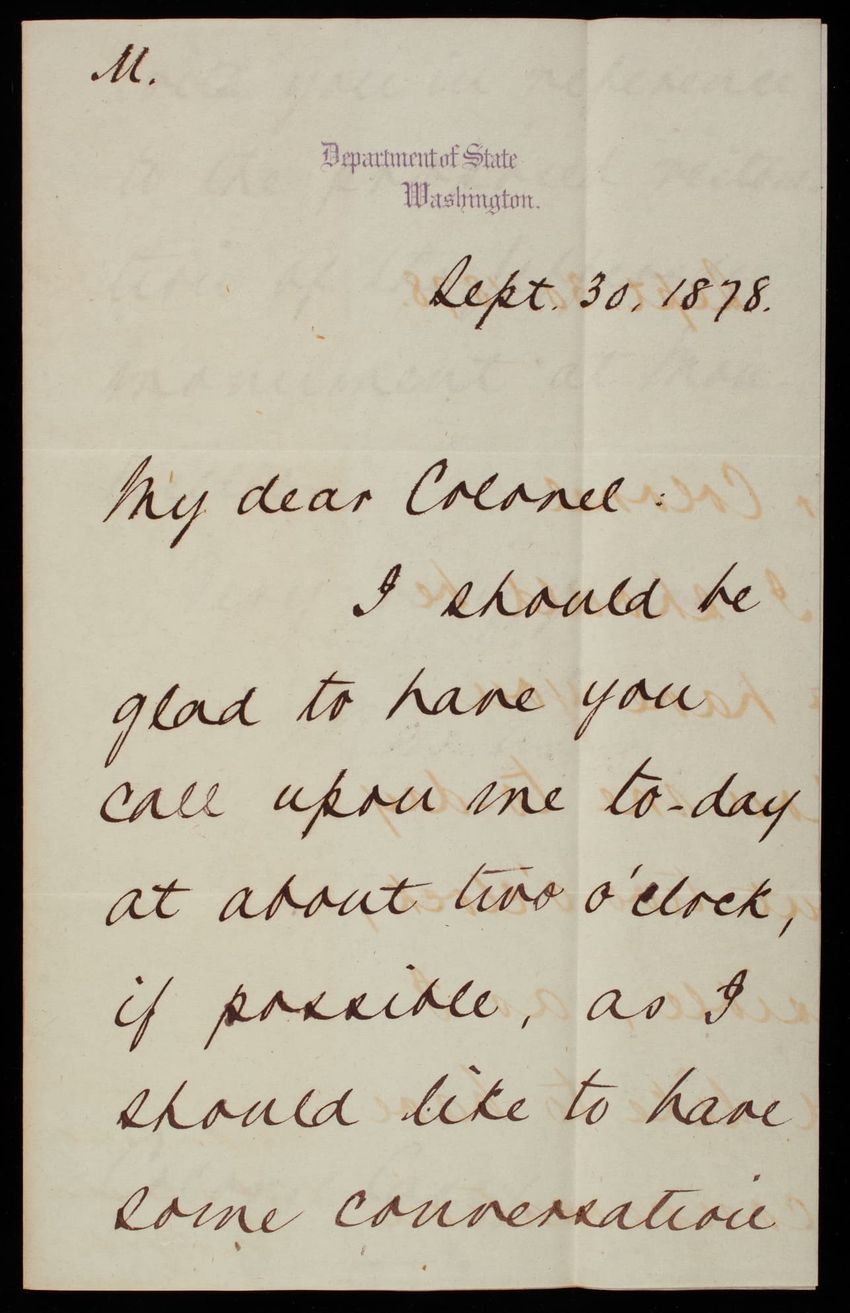 M.
Department of State
Washington.
Sept. 30, 1878.
My dear Colonel:
I should be
glad to have you
call upon me to-day
at about two o'clock,
if possible, as I
should like to have
some conversation